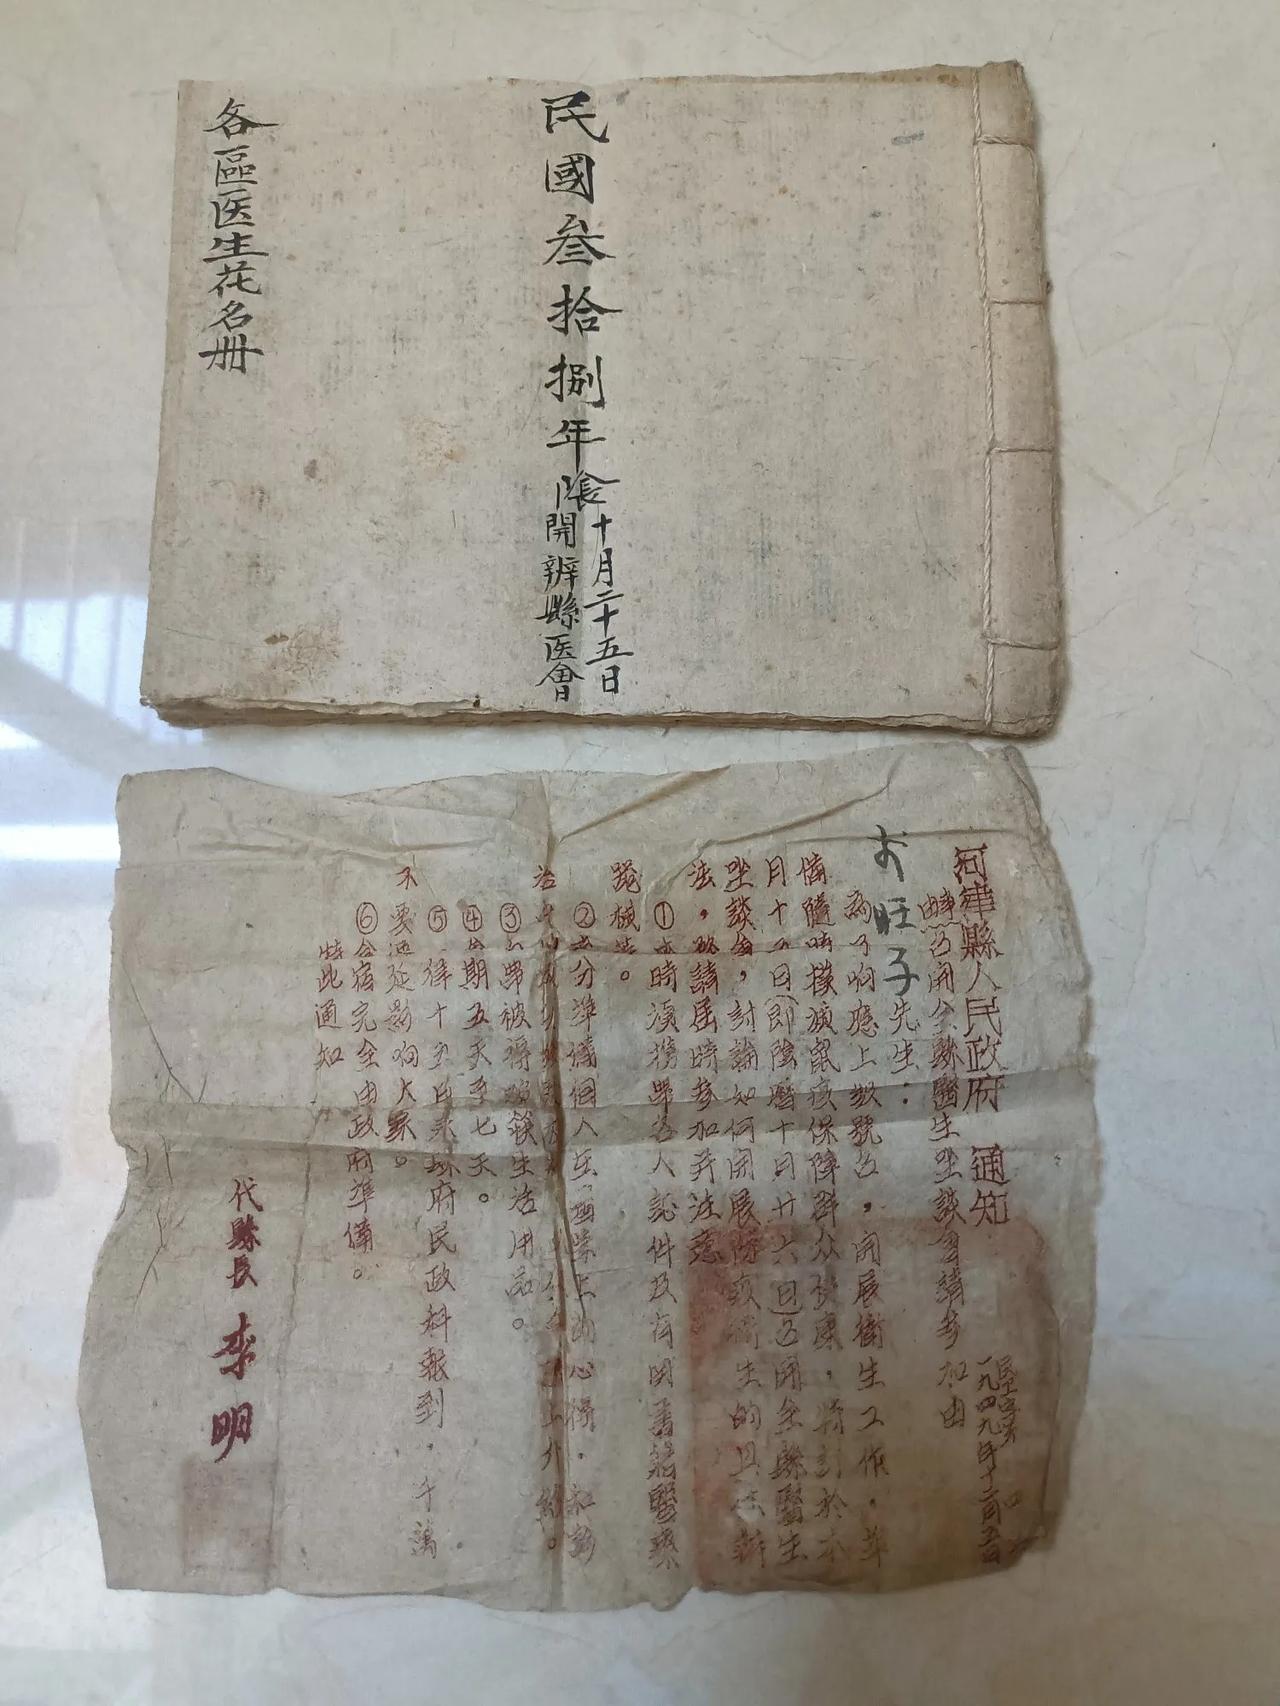 民國叄拾捌年陰十月二十五日
開辦縣医會
各區医生花名册
河津縣人民政府 通知
一九四九年十二月五日
由 召開全縣醫生坐談會請參加由
旺子先生：
為了响應上級號召，開展衛生工作，並
備隨時撲滅鼠疫保障群众健康，特討於本
月十五日(即陰曆十月廿六日)召開全縣醫生
坐談會，討論如何開展防疫衛生的具体辦
法，敬請屆時參加并注意
①來時須携帶各人証件及有関書籍醫藥
器械等。
②充分準備個人在醫葯上的心得，和診
治
③自帶被褥碗筷生活用品。
④會期五天至七天。
⑤ 十五日來縣府民政科報到，千萬
不要遲延影响大家。
⑥食宿完全由政府準備。
特此通知
代縣長 李明